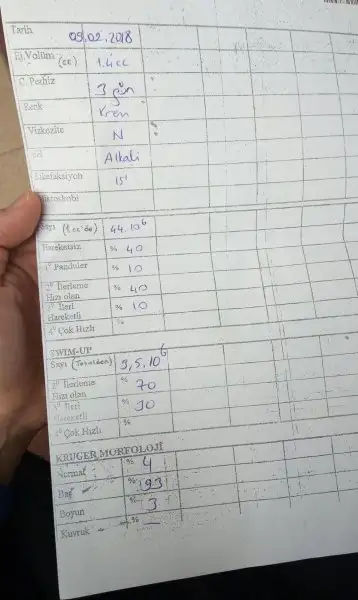 Tarih 09.02.2018
Ej. Volüm (cc) 1.4 cc
C. Perhiz 3 gün
Renk Krem
Vizkozite N
Alkali
Likefaksiyon 15'
Mikroskobi
Sayı (1 cc'de) 44.10⁶
Hareketsiz % 40
1° Pandüler % 10
2° İlerleme % 40
Hızı olan
3° İleri % 10
Hareketli
4° Çok Hızlı %
SWIM-UP
Sayı (Totalden) 3,5.10⁶
2° İlerleme % 70
Hızı olan
3° İleri % 30
Hareketli
4° Çok Hızlı %
KRUGER MORFOLOJİ
Normal % 4
Baş % 93
Boyun % 3
Kuyruk % —